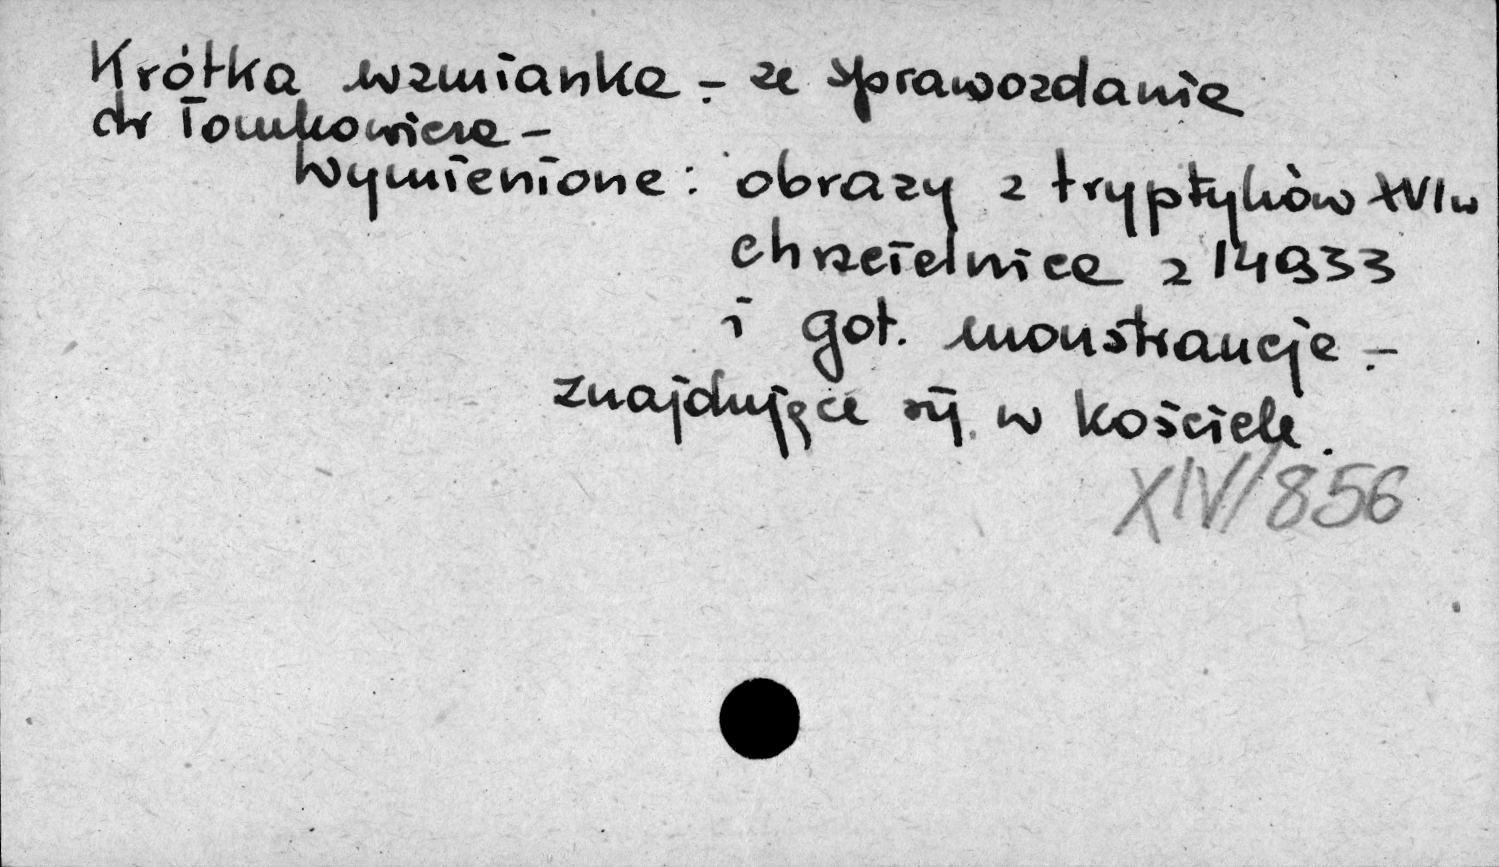 Krótka wzmianka – ze sprawozdania
dr Tomkowicza –
wymienione: obrazy z tryptyków XVI w
chrzcielnica z 14933
i got. monstrancje –
znajdujące się w kościele.
XIV/856